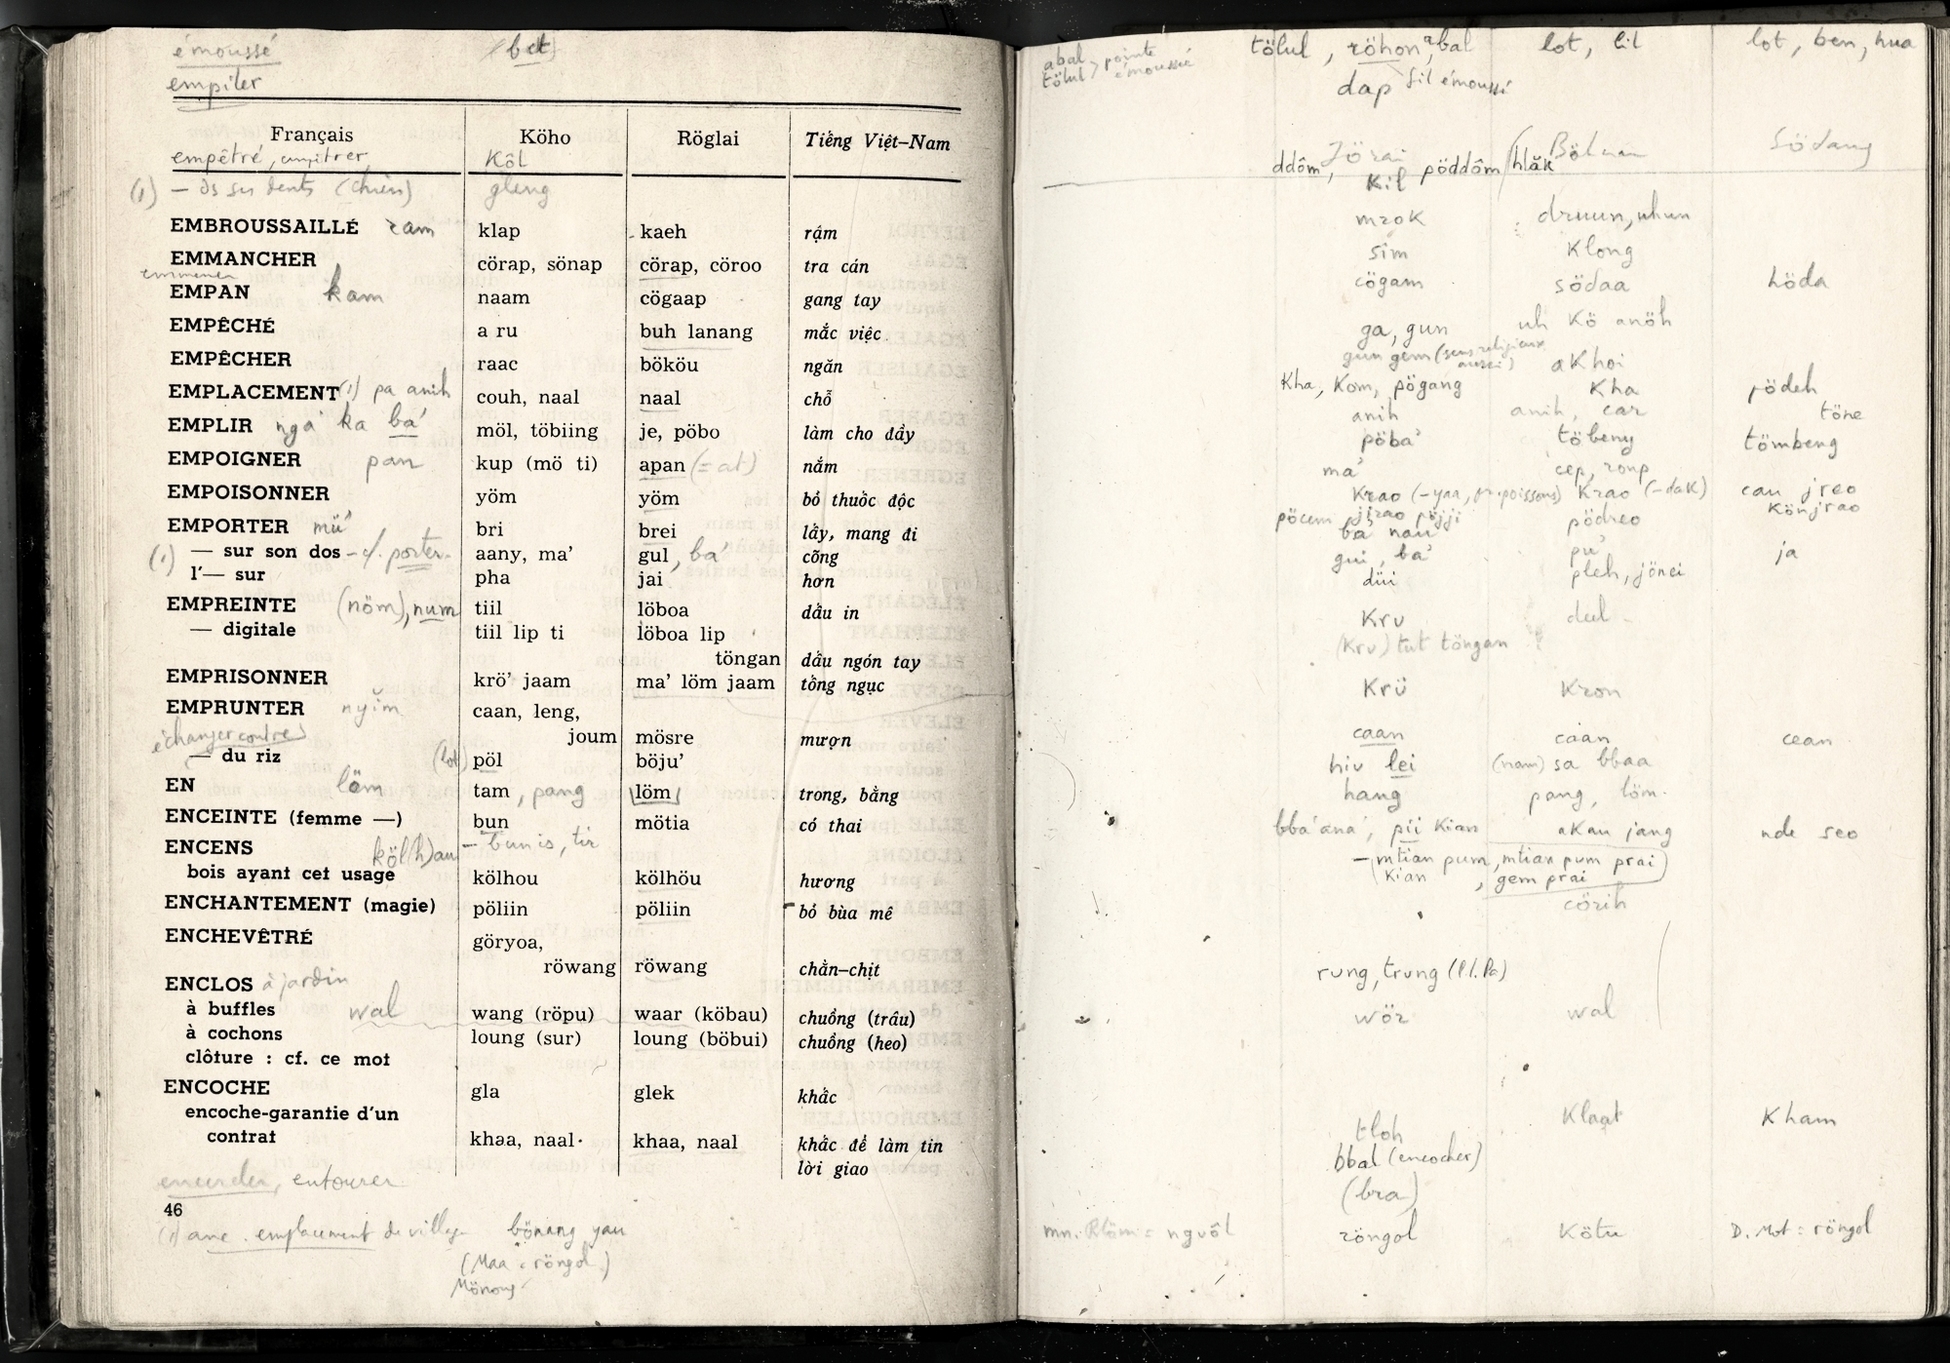 émoussé bət
empiler
Français Köho Röglai Tiếng Việt-Nam
empêtré, Kôl
(1) — os sur dents (chien) gleng
EMBROUSSAILLÉ ram klap kaeh rậm
EMMANCHER cörap, sönap cörap, cöroo tra cán
emmener
EMPAN kam naam cögaap gang tay
EMPÊCHÉ a ru buh lanang mắc việc
EMPÊCHER raac bököu ngăn
EMPLACEMENT (1) pa anih couh, naal naal chỗ
EMPLIR ngá ka ba' möl, töbiing je, pöbo làm cho đầy
EMPOIGNER pan kup (mö ti) apan (= at) nắm
EMPOISONNER yöm yöm bỏ thuốc độc
EMPORTER mü' bri brei lấy, mang đi
(1) — sur son dos - cf. porter aany, ma' gul, ba' cõng
l'— sur pha jai hơn
EMPREINTE (nöm), num tiil löboa dấu in
— digitale tiil lip ti löboa lip
töngan dấu ngón tay
EMPRISONNER krö' jaam ma' löm jaam tống ngục
EMPRUNTER nyim caan, leng,
joum mösre mượn
échanger contre
— du riz (lot) pöl böju'
EN löm tam, pang löm trong, bằng
ENCEINTE (femme —) bun mötia có thai
ENCENS köl(h)au — bun is, tir
bois ayant cet usage kölhou kölhöu hương
ENCHANTEMENT (magie) pöliin pöliin bỏ bùa mê
ENCHEVÊTRÉ göryoa,
röwang röwang chằn-chịt
ENCLOS à jardin
à buffles wal wang (röpu) waar (köbau) chuồng (trâu)
à cochons loung (sur) loung (böbui) chuồng (heo)
clôture : cf. ce mot
ENCOCHE gla glek khắc
encoche-garantie d'un
contrat khaa, naal khaa, naal khắc để làm tin
lời giao
encercler, entourer
46
(1) anc. emplacement de village bönang yau
(Maa : röngol)
Mönong
abal pointe tölul, röhon, abal lot, lil lot, ben, hua
tölul émoussée
dap fil émoussé
Jörai Böhnar Södang
ddôm, pöddôm hlăk
kil
mrok druun, uhun
sim klong
cögam södaa höda
ga, gun uh kö anöh
gun gem (sens religieux
aussi) akhoi
kha, kom, pögang kha pödeh
anih anih, car töne
pöba' töbeng tömbeng
ma' cep, ronp
krao (-yaa, pr poissons) krao (-dak) can jreo
pöcem jrao pöjji pödreo könjrao
ba nau
gui, ba' pu' ja
düi pleh, jönei
kru dul
(kru) tut töngan
krü kron
caan caan cean
hiu lei (nam) sa bbaa
hang pang, löm
bba' ana', pii kian akau jang nde seo
— mtian pum, mtian pum prai
kian, gem prai
cörih
rung, trung (P.l. Pa)
wör wal
klaat kham
tloh
bbal (encocher)
(bra)
mn. Rlöm = nguôl röngol kötu D. Mot : röngol